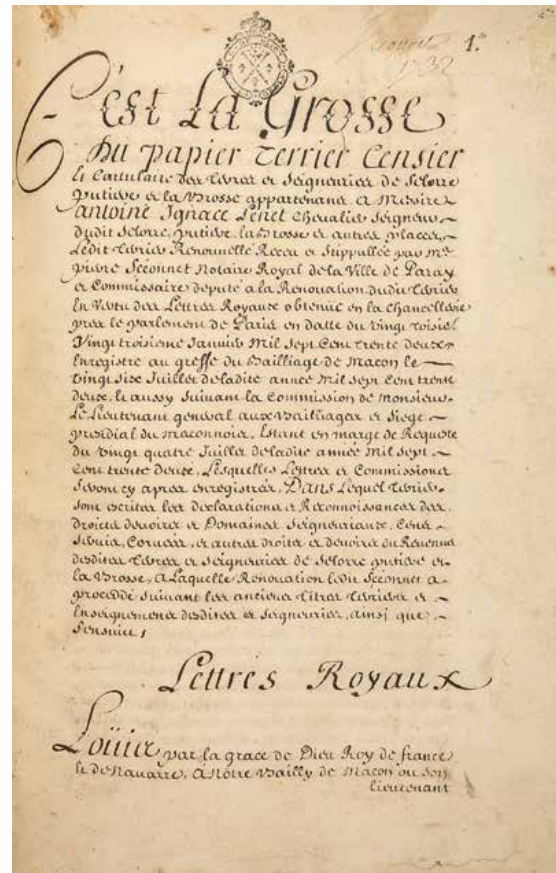 1.
1732
C'est La Grosse
Du papier Terrier Censier
et Cartulaire des terres et Seigneuries de Selorre
putiere et la Brosse appartenans a Messire
Antoine Ignace Lenet Chevalier Seigneur
dudit Selorre, putiere, la Brosse et autres places,
Ledit terrier Renouvellé Receu et Stippullée par Me
pierre Séconnet Notaire Royal de la Ville de Paray
et Commissaire deputé a la Renovation dudit terrier
En Vertu des Lettres Royaux obtenue en la Chancellerie
pres le parlement de Paris en datte du
Vingt troisieme Janvier Mil Sept Cent trente deux
Enregistre au greffe du Bailliage de Macon le
Vingt Six Juillet de ladite année Mil Sept Cent trente
deux, et aussy Suivant la Commission de Monsieur
Le Lieutenant general aux Bailliages et Siege
presidial du Maconnois, Estant en marge de Requeste
du Vingt quatre Juillet de ladite année Mil Sept
Cent trente deux, Lesquelles Lettres et Commissions
Seront cy apres enregistrées, Dans Lequel terrier
Sont escrites les declarations et Reconnoissances des
droits devoirs et Domaines Seigneuriaux, Cens
Servis, Corvées, et autres droits et devoirs du Revenue
desdites terres et Seigneuries de Selorre putiere et
la Brosse, a Laquelle Renovation ledit Séconnet a
proceddé Suivant les anciens titres terriers et
Enseignemens desdites et Seigneuries, ainsi que
S'ensuit,
Lettres Royaux
Loüis par la grace de Dieu Roy de france
et de Navarre, a Notre Bailly de Macon ou Son
Lieutenant